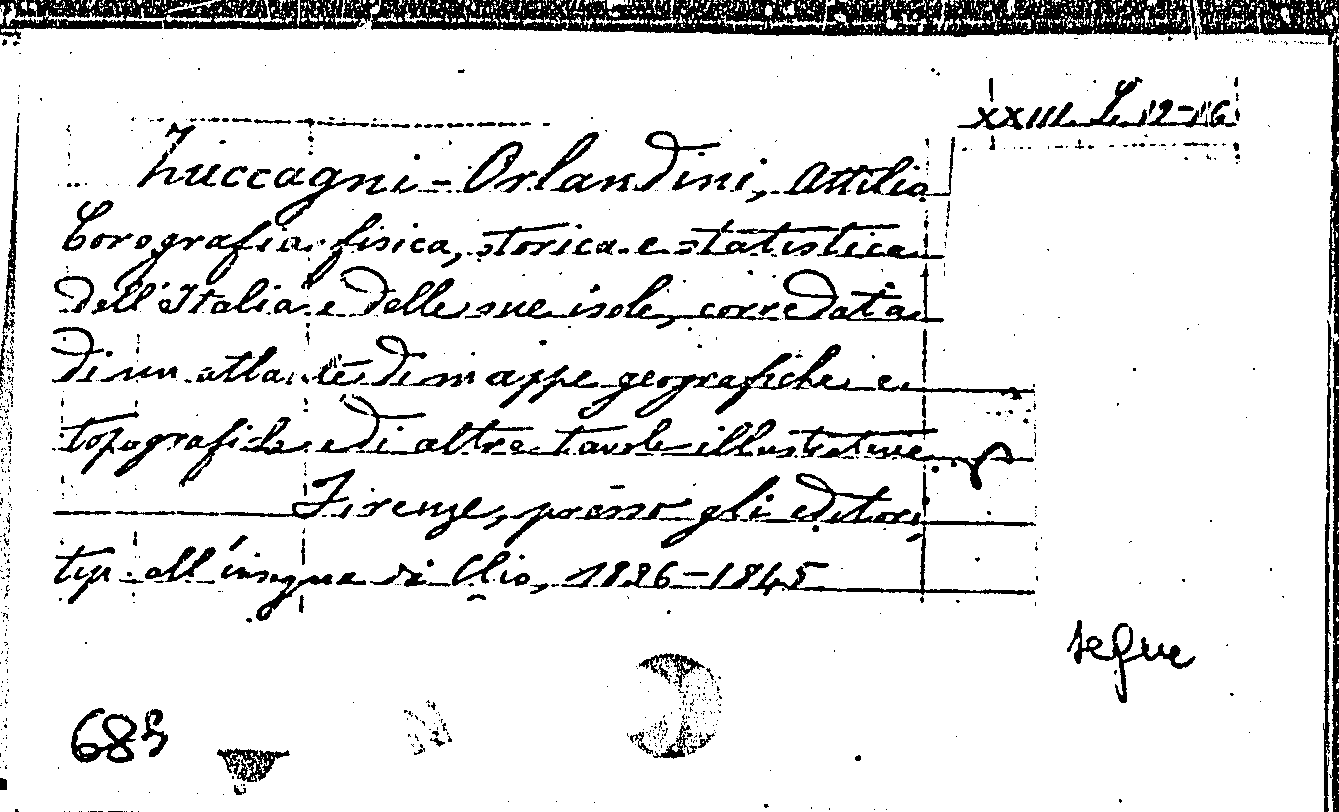 XXIII. L. 12-16
Zuccagni-Orlandini, Attilio
Corografia fisica, storica e statistica
dell'Italia e delle sue isole, corredata
di un atlante di mappe geografiche e
topografiche e di altre tavole illustrative.
Firenze, presso gli editori,
tip. all'insegna di Clio, 1836-1845
segue
685